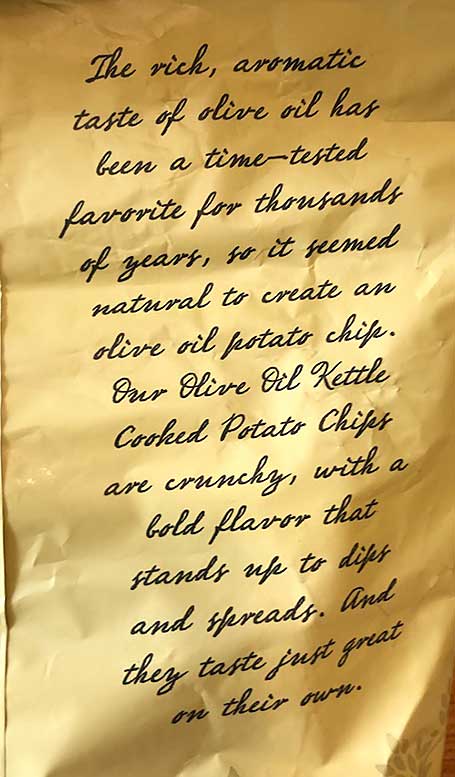 The rich, aromatic
taste of olive oil has
been a time-tested
favorite for thousands
of years, so it seemed
natural to create an
olive oil potato chip.
Our Olive Oil Kettle
Cooked Potato Chips
are crunchy, with a
bold flavor that
stands up to dips
and spreads. And
they taste just great
on their own.